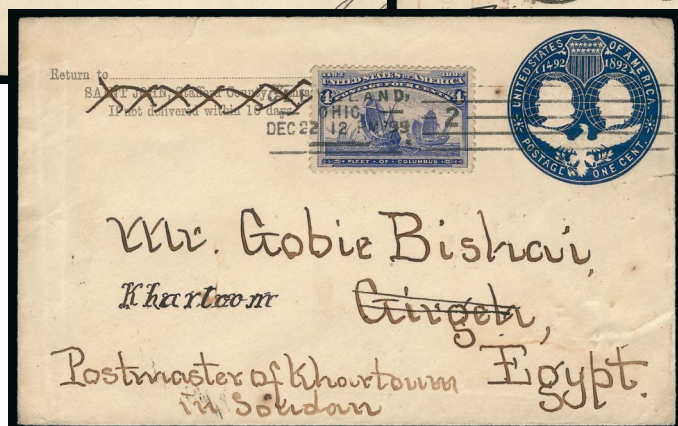 Return to
SAINT JOHN, Stafford County,
If not delivered within 10 days
UNITED STATES OF AMERICA
4 4
FLEET OF COLUMBUS
ELAND,
OHIO
DEC 22 12 2
UNITED STATES OF AMERICA
1492 1892
POSTAGE ONE CENT.
Mr. Gobie Bishai,
Khartoom Girgeh,
Postmaster of Khartoum Egypt.
in Soudan